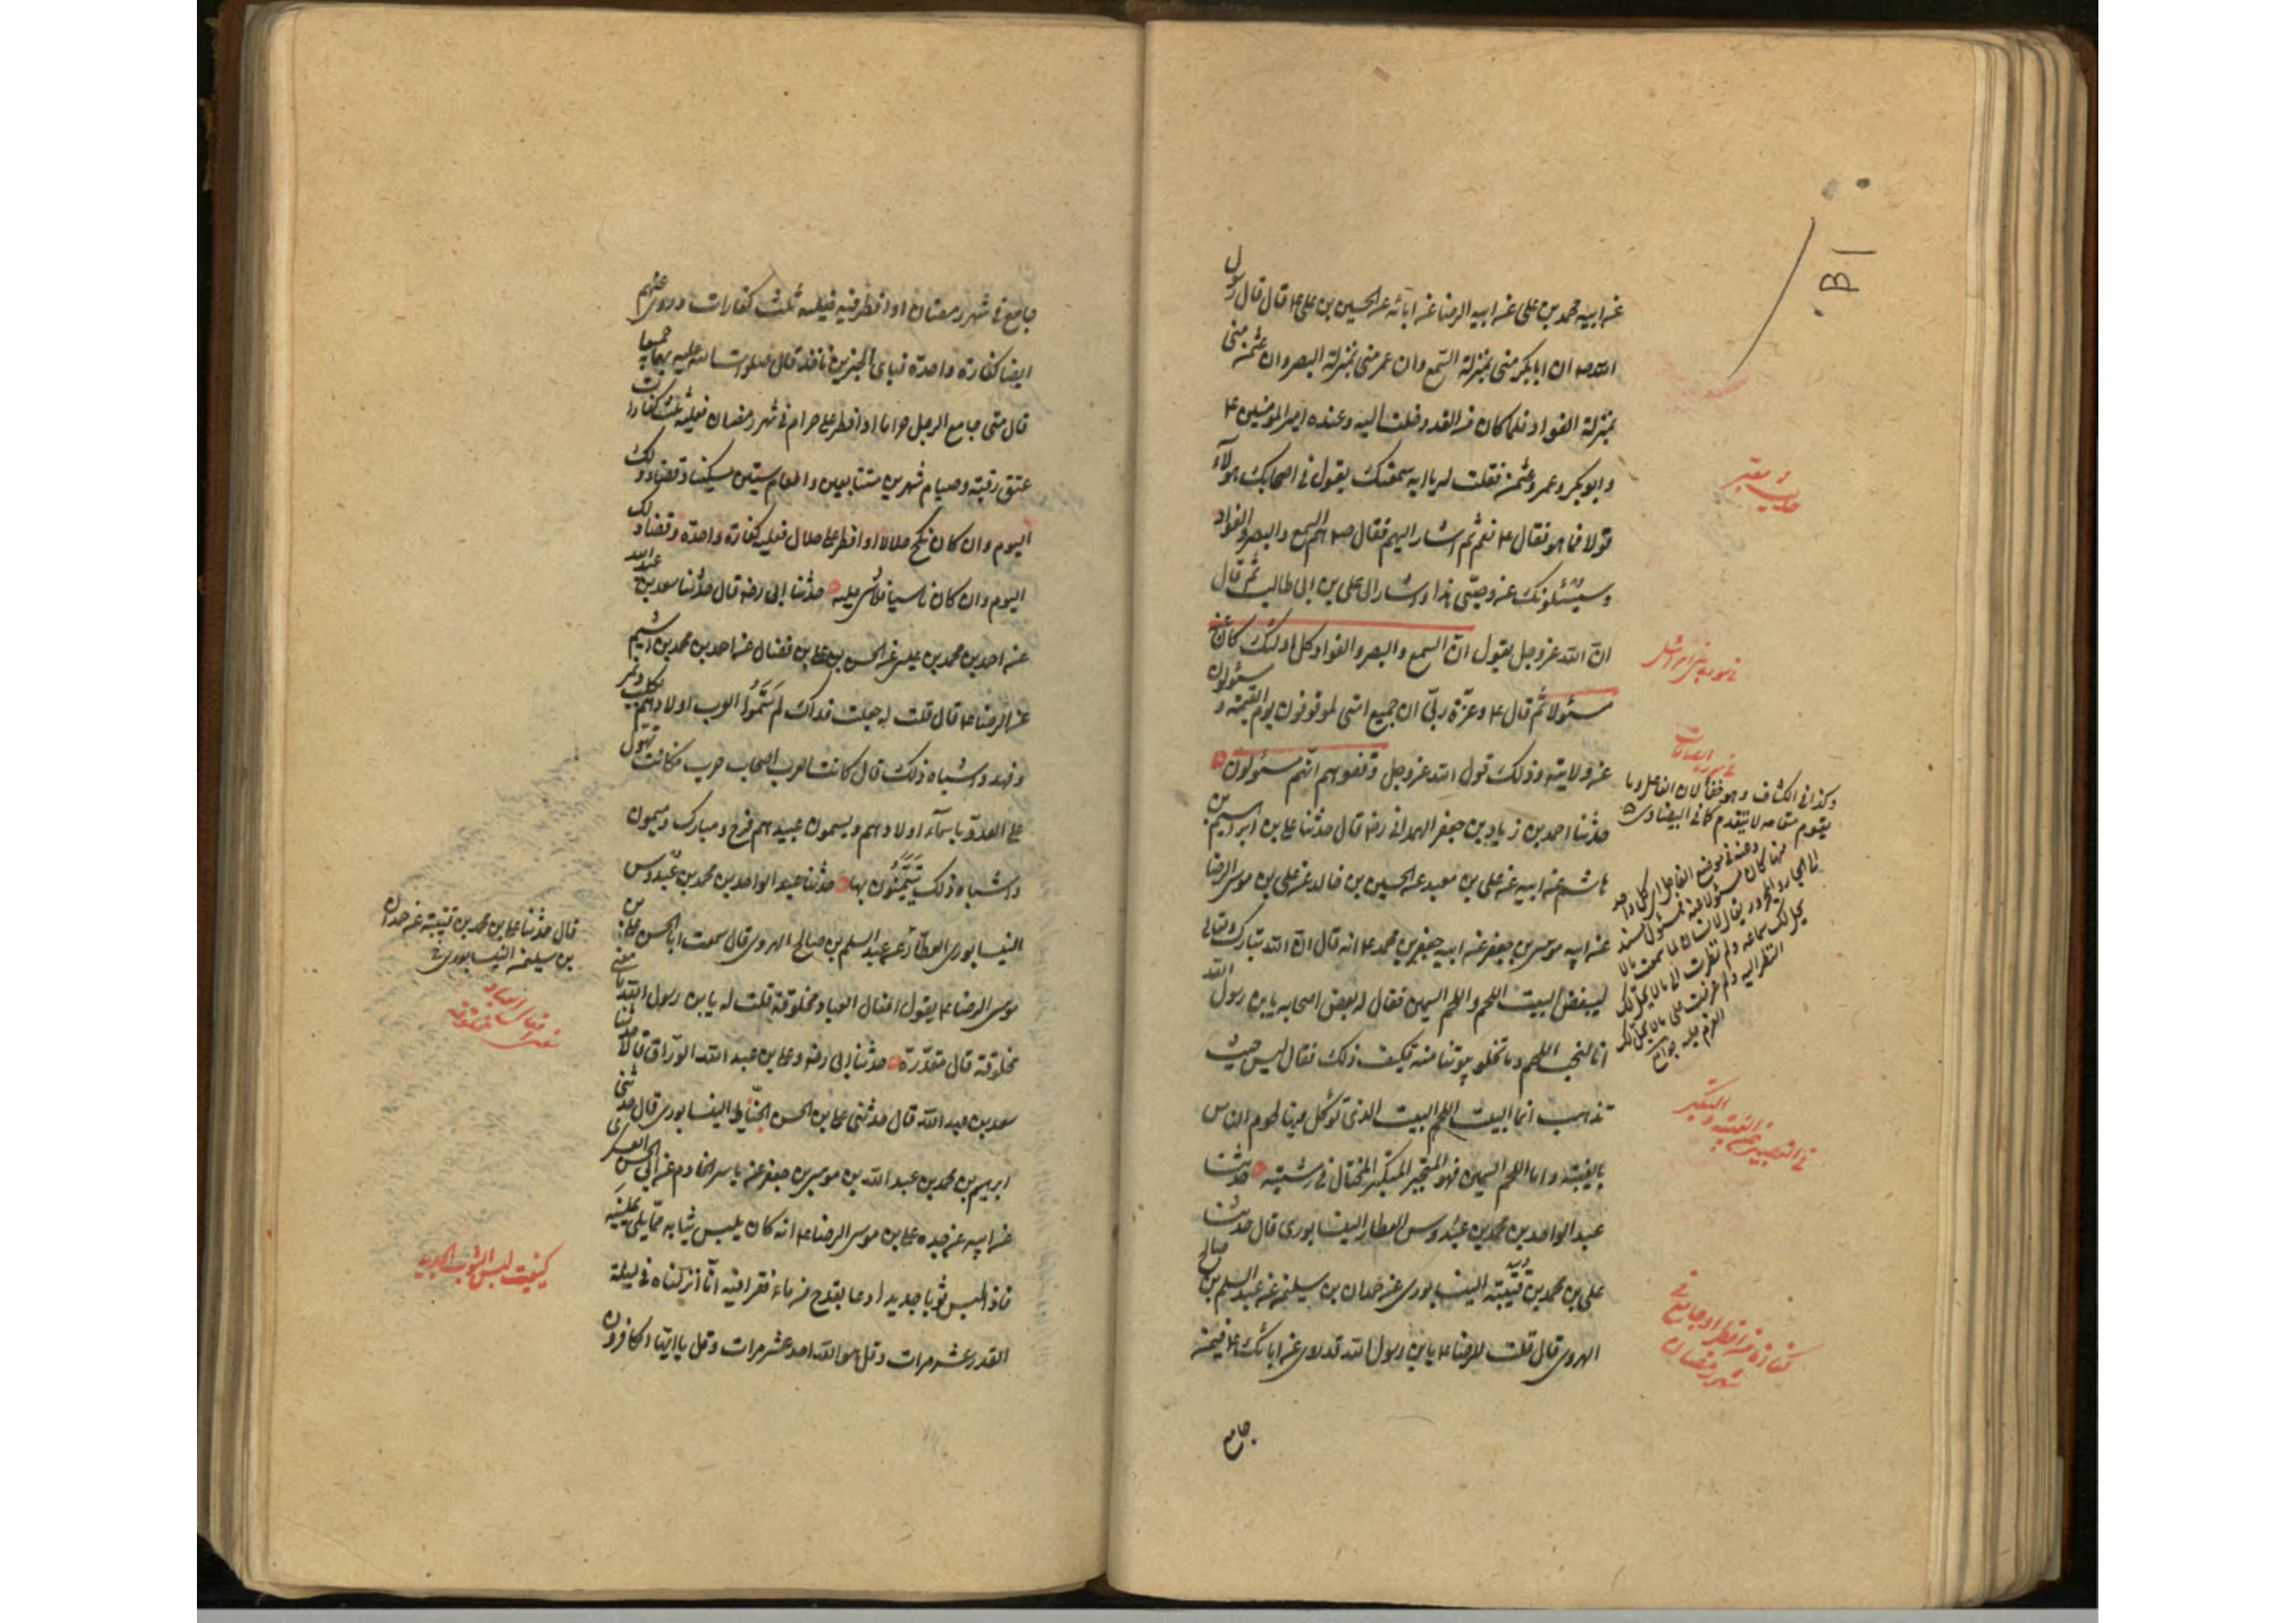 عن ابيه محمد بن على عن ابيه الرضا عن ابائه عن الحسين بن على ع قال قال رسول
الله ص ان ابا بكر منى بمنزلة السّمع وان عمر منى بمنزلة البصر وان عثمن منى
بمنزلة الفواد فلما كان من الغد دخلت اليه وعنده امير المؤمنين ع
وابو بكر وعمر وعثمن فقلت له يا ابه سمعتك يقول فى اصحابك هولآء
قولا فما هو فقال ع نعم ثم اشار اليهم فقال ص هم السمع والبصر والفواد
وسيسئلونك عن وصيّى هذا واشار الى على بن ابى طالب ثم قال
انّ الله عز وجل يقول انّ السمع والبصر والفواد كل اولئك كان عنه
مسئولا ثم قال ع وعزّة ربّى ان جميع امتى لموقوفون يوم القيمة و مسئولون
عن ولايته وذلك قول الله عز وجل وقفوهم انهم مسئولون
حدّثنا احمد بن زياد بن جعفر الهمدانى رضه قال حدّثنا على بن ابرهيم بن
هاشم عن ابيه عن على بن معبد عن الحسين بن خالد عن على بن موسى الرضا
عن ابيه موسى بن جعفر عن ابيه جعفر بن محمد ع انه قال انّ الله تبارك وتعالى
ليبغض البيت اللحم واللحم السمين فقال له بعض اصحابه يا بن رسول الله
انا لنحب اللحم وما تخلو بيوتنا منه فكيف ذلك فقال ليس حيث
تذهب انما البيت اللحم البيت الذى تؤكل فيها لحوم الناس
بالغيبة واما اللحم السمين فهو المتجبر المتكبر المختال فى مشيته حدثنا
عبد الواحد بن محمد بن عبدوس العطار النيسابورى قال حدثنا
على بن محمد بن قتيبة النيسابورى عن حمدان بن سليمن عن عبد السلم بن صالح
الهروى قال قلت للرضا ع يا بن رسول الله قد روى عن ابائك ع فيمن
جامع
فى سورة بنى اسرائيل
وكذا فى الكشاف وهو خطأ لان الفاعل وما
يقوم مقامه لا يتقدم كما فى البيضاوى
كفارة من افطر او جامع فى
شهر رمضان
جامع فى شهر رمضان او افطر فيه فعليه ثلث كفارات وروى عنهم
ايضا كفارة واحدة فباى الخبرين ناخذ قال صلوات الله عليه بهما جميعا
قال متى جامع الرجل حراما او افطر على حرام فى شهر رمضان فعليه ثلث كفارات
عتق رقبة وصيام شهرين متتابعين واطعام ستين مسكينا وقضاء ذلك
اليوم وان كان نكح حلالا او افطر على حلال فعليه كفارة واحدة وقضاء ذلك
اليوم وان كان ناسيا فلا شى عليه حدّثنا ابى رضه قال حدّثنا سعد بن عبد الله
عن احمد بن محمد بن عيسى عن الحسن بن على بن فضال عن احمد بن محمد بن اشيم
عن الرضا ع قال قلت له جعلت فداك لم سَمَّوا العرب اولادهم بكلب ونمر
وفهد واشباه ذلك قال كانت العرب اصحاب حرب فكانت تهول
على العدو باسمآء اولادهم ويسمون عبيدهم فرح ومبارك وميمون
واشباه ذلك يتيمّنون بها حدثنا عبد الواحد بن محمد بن عبدوس
النيسابورى العطّار عن عبد السلم بن صالح الهروى قال سمعت ابا الحسن على بن
موسى الرضا ع يقول افعال العباد مخلوقة قلت له يا بن رسول الله ما معنى
مخلوقة قال مقدّرة حدثنا ابى رضه وعلى بن عبد الله الورّاق قالا حدثنا
سعد بن عبد الله قال حدثنى على بن الحسن الخيّاط النيسابورى قال حدثنى
ابرهيم بن محمد بن عبد الله بن موسى بن جعفر عن ياسر الخادم عن ابى الحسن العسكرى
عن ابيه عن جده على بن موسى الرضا ع انه كان يلبس ثيابه ممّا يلى يمينه
فاذا لبس ثوبا جديدا دعا بقدح من ماء فقرا فيه انّا انزلناه فى ليلة
القدر عشر مرات وقل هو الله احد عشر مرات وقل يا ايها الكافرون
قال حدّثنا على بن محمد بن قتيبة عن حمدان
بن سليمن النيسابورى
كيفيت لبس الثوب الجديد